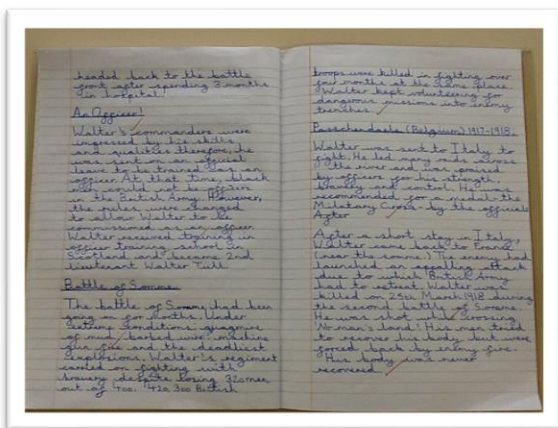 headed back to the battle
front after spending 3 months
in hospital!
An Officer!
Walter's commanders were
impressed by his skills
and qualities therefore, he
was sent on an official
leave to be trained as an
officer. At that time, black
men could not be officers
in the British Army. However,
the rules were changed
to allow Walter to be
commissioned as an officer.
Walter received training in
officer training school in
Scotland and became 2nd
lieutenant Walter Tull.
Battle of Somme
The battle of Somme had been
going on for months. Under
extreme conditions: quagmire
of mud, barbed wire machine
gun fire and the deadliest
explosions, Walter's regiment
carried on fighting with
bravery despite losing 320 men
out of 400. 420,300 British
troops were killed in fighting over
four months at the same place.
Walter kept volunteering for
dangerous missions into enemy
trenches.
Passchendaele (Belgium) 1917-1918.
Walter was sent to Italy to
fight. He led many raids across
the river and was praised
by officers for his strength,
bravery and control. He was
recommended for a medal-the
Military Cross- by the officials
After
After a short stay in Italy,
Walter came back to France
(near the somme.) The enemy had
launched an appalling attack
due to which British Army
had to retreat. Walter was
killed on 25th March 1918 during
the second battle of Somme.
He was shot while crossing
'No man's land'! His men tried
to recover his body but were
forced back by enemy fire.
His body was never
recovered.